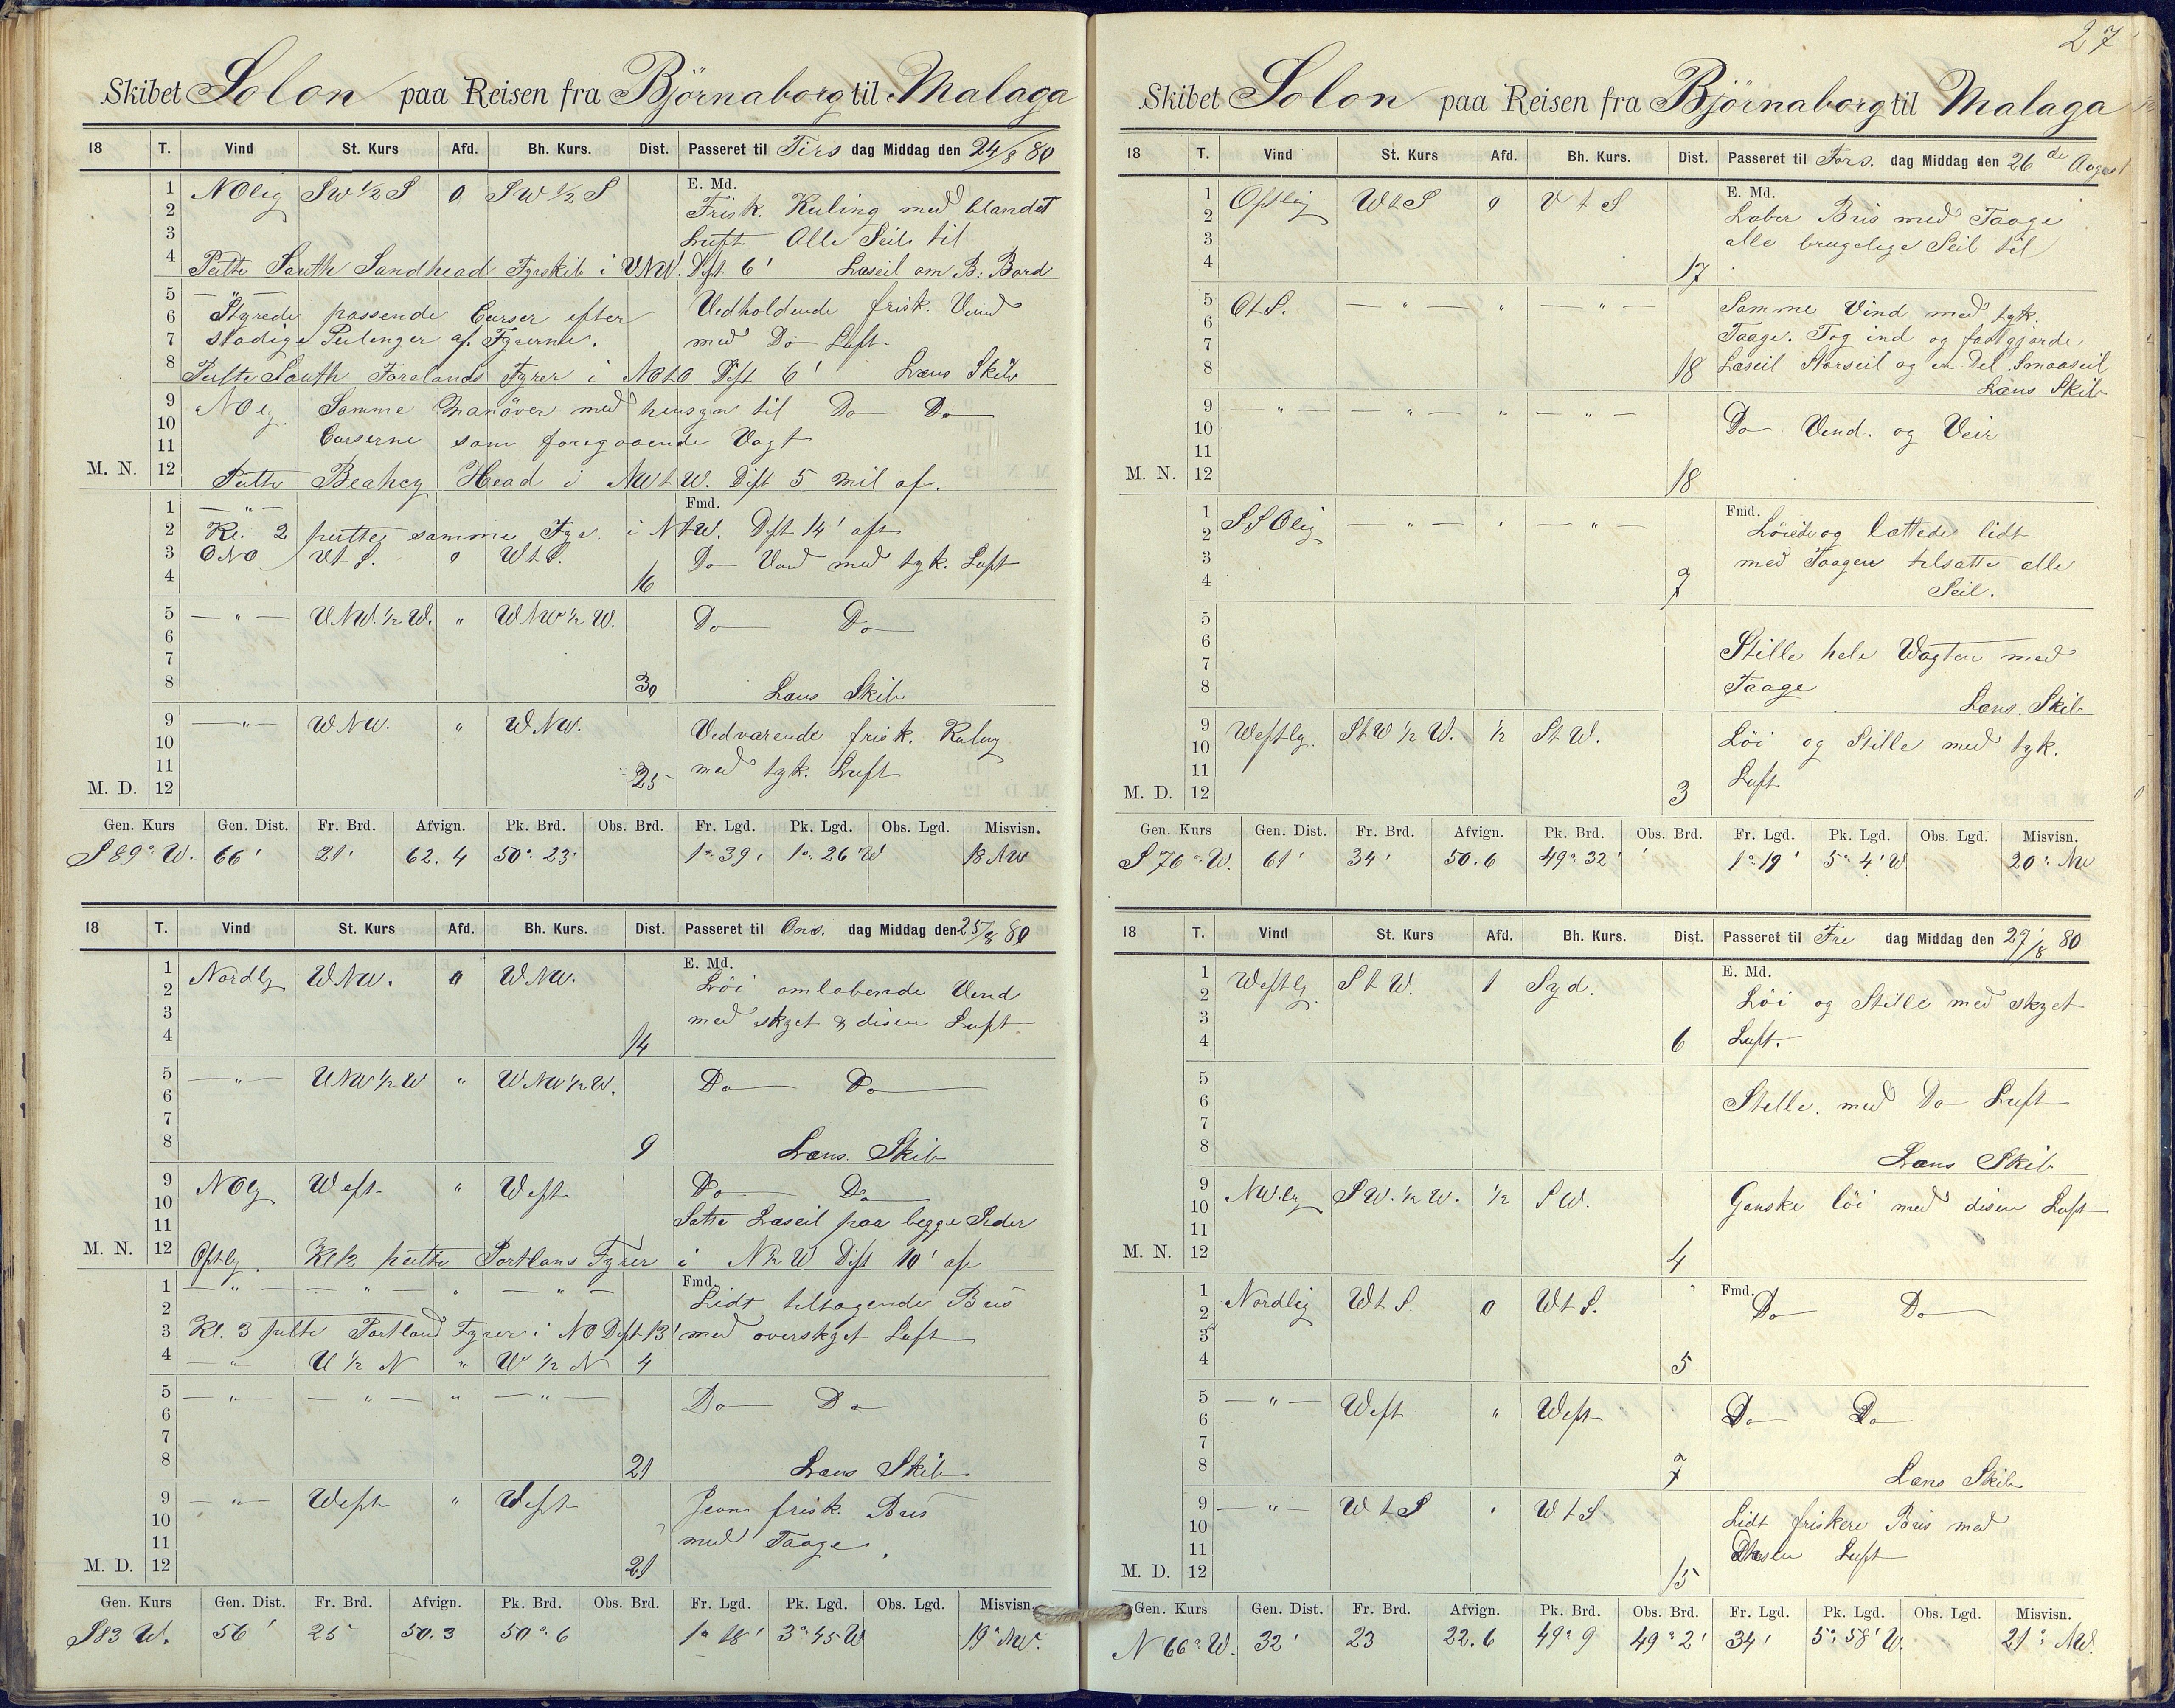 Skibet Solon paa Reisen fra Björnaborg til Malaga
18 T. Vind St. Kurs Afd. Bh. Kurs. Dist. Passeret til Tirs dag Middag den 24/8 80
E. Md.
1 NOlig SW 1/2 S 0 SW 1/2 S Frisk. Kuling med blandet
2
3 Luft Alle Seil til
4 Peilte South Sandhead Fyrskib i VNW. Dist 6' Læseil om B. Bord
5 — " — Styrede passende Curser efter Vedholdende frisk. Vind
6
7 stadige Peilinger af Fyrerne. med Do Luft
8 Peilte South Forelands Fyrer i NOtO Dist 6' Læns Skib
9 NOlg. Samme Manöver med hensyn til Do Do
10
11 Curserne som foregaaende Vagt
M. N. 12 Peilte Beahcy Head i NWtW. Dist 5 Mil af.
Fmd.
1 — " —
2 Kl. 2 peiltes samme Fyr. i NtW. Dist 14' af
3 ONO Vt S. 0 WtS. Do Vind med tyk. Luft
4 16
5 — " — VNW. 1/2 W. " WNW 1/2 W. Do Do
6
7
8 30 Læns Skib
9 — " — WNW. " WNW. Vedvarende frisk. Kuling
10
11 med tyk. Luft
M. D. 12 25
Gen. Kurs Gen. Dist. Fr. Brd. Afvign. Pk. Brd. Obs. Brd. Fr. Lgd. Pk. Lgd. Obs. Lgd. Misvisn.
S 89° W. 66' 21' 62.4 50° 23' 1° 39' 1° 26' W 18 NW
18 T. Vind St. Kurs Afd. Bh. Kurs. Dist. Passeret til Ons. dag Middag den 25/8 80
E. Md.
1 Nordlg WNW. 0 WNW. Löi omlobende Vind
2
3 med skyet & disen Luft
4 14
5 — " — VNW 1/2 W " WNW 1/2 W. Do Do
6
7
8 9 Læns. Skib
9 NOlg West " West Do Do
10
11 Satte Læseil paa begge Sider
M. N. 12 Ostlg. Kl 12 peilte Portlans Fyrer i NtW Dist 10' af
Fmd.
1 — " — — " — " — " — Lidt tiltagende Bris
2
3 Kl. 3 peilte Portland Fyrer i NO Dist 13' med overskyet Luft
4 — " — V 1/2 N " W 1/2 N 4
5 — " — — " — " — " — Do Do
6
7
8 21 Læns Skib
9 — " — West " West Jevn frisk. Bris
10
11 med Taage.
M. D. 12 21
Gen. Kurs Gen. Dist. Fr. Brd. Afvign. Pk. Brd. Obs. Brd. Fr. Lgd. Pk. Lgd. Obs. Lgd. Misvisn.
S 83 W. 56' 25 50.3 50° 6 1° 18' 3° 45 W 19° NW.
27
Skibet Solon paa Reisen fra Björnaborg til Malaga
18 T. Vind St. Kurs Afd. Bh. Kurs. Dist. Passeret til Tors. dag Middag den 26de August
E. Md.
1 Ostlig WtS 0 VtS Laber Bris med Taage
2
3 alle brugelige Seil til
4 17
5 OtS. — " — " — " — Samme Vind med tyk.
6
7 Taage. Tog ind og fastgjorde
8 18 Læseil Storseil og en Del Smaaseil
Læns Skib
9 — " — — " — " — " — Do Vind. og Veir
10
11
M. N. 12 18
Fmd.
1 SSOlig — " — " — " — Löiede og lettede lidt
2
3 med Taagen tilsatte alle
4 7 Seil.
5
6 Stille hele Vagten med
7
8 Taage Læns. Skib
9 Westlg. StW 1/2 W. 1/2 StW. Löi og Stille med tyk.
10
11 Luft
M. D. 12 3
Gen. Kurs Gen. Dist. Fr. Brd. Afvign. Pk. Brd. Obs. Brd. Fr. Lgd. Pk. Lgd. Obs. Lgd. Misvisn.
S 76° W. 61' 34' 50.6 49° 32' 1° 19' 5° 4' W. 20° NW
18 T. Vind St. Kurs Afd. Bh. Kurs. Dist. Passeret til Fre dag Middag den 27/8 80
E. Md.
1 Westlg. StW. 1 Syd. Löi og Stille med skyet
2
3
4 6 Luft.
5
6 Stille. med Do Luft
7
8 Læns Skib
9 NW.lg SW. 1/2 W. 1/2 SW. Ganske löi med disen Luft
10
11
M. N. 12 4
Fmd.
1 Nordlig WtS. 0 WtS. Do Do
2
3
4 5
5 — " — West " West Do Do
6
7
8 7 Læns Skib
9 — " — WtS " WtS Lidt friskere Bris med
10
11 Luft
M. D. 12 15
Gen. Kurs Gen. Dist. Fr. Brd. Afvign. Pk. Brd. Obs. Brd. Fr. Lgd. Pk. Lgd. Obs. Lgd. Misvisn.
N 66° W. 32' 23 22.6 49° 9 49° 2' 34' 5° 58' W. 21° NW.